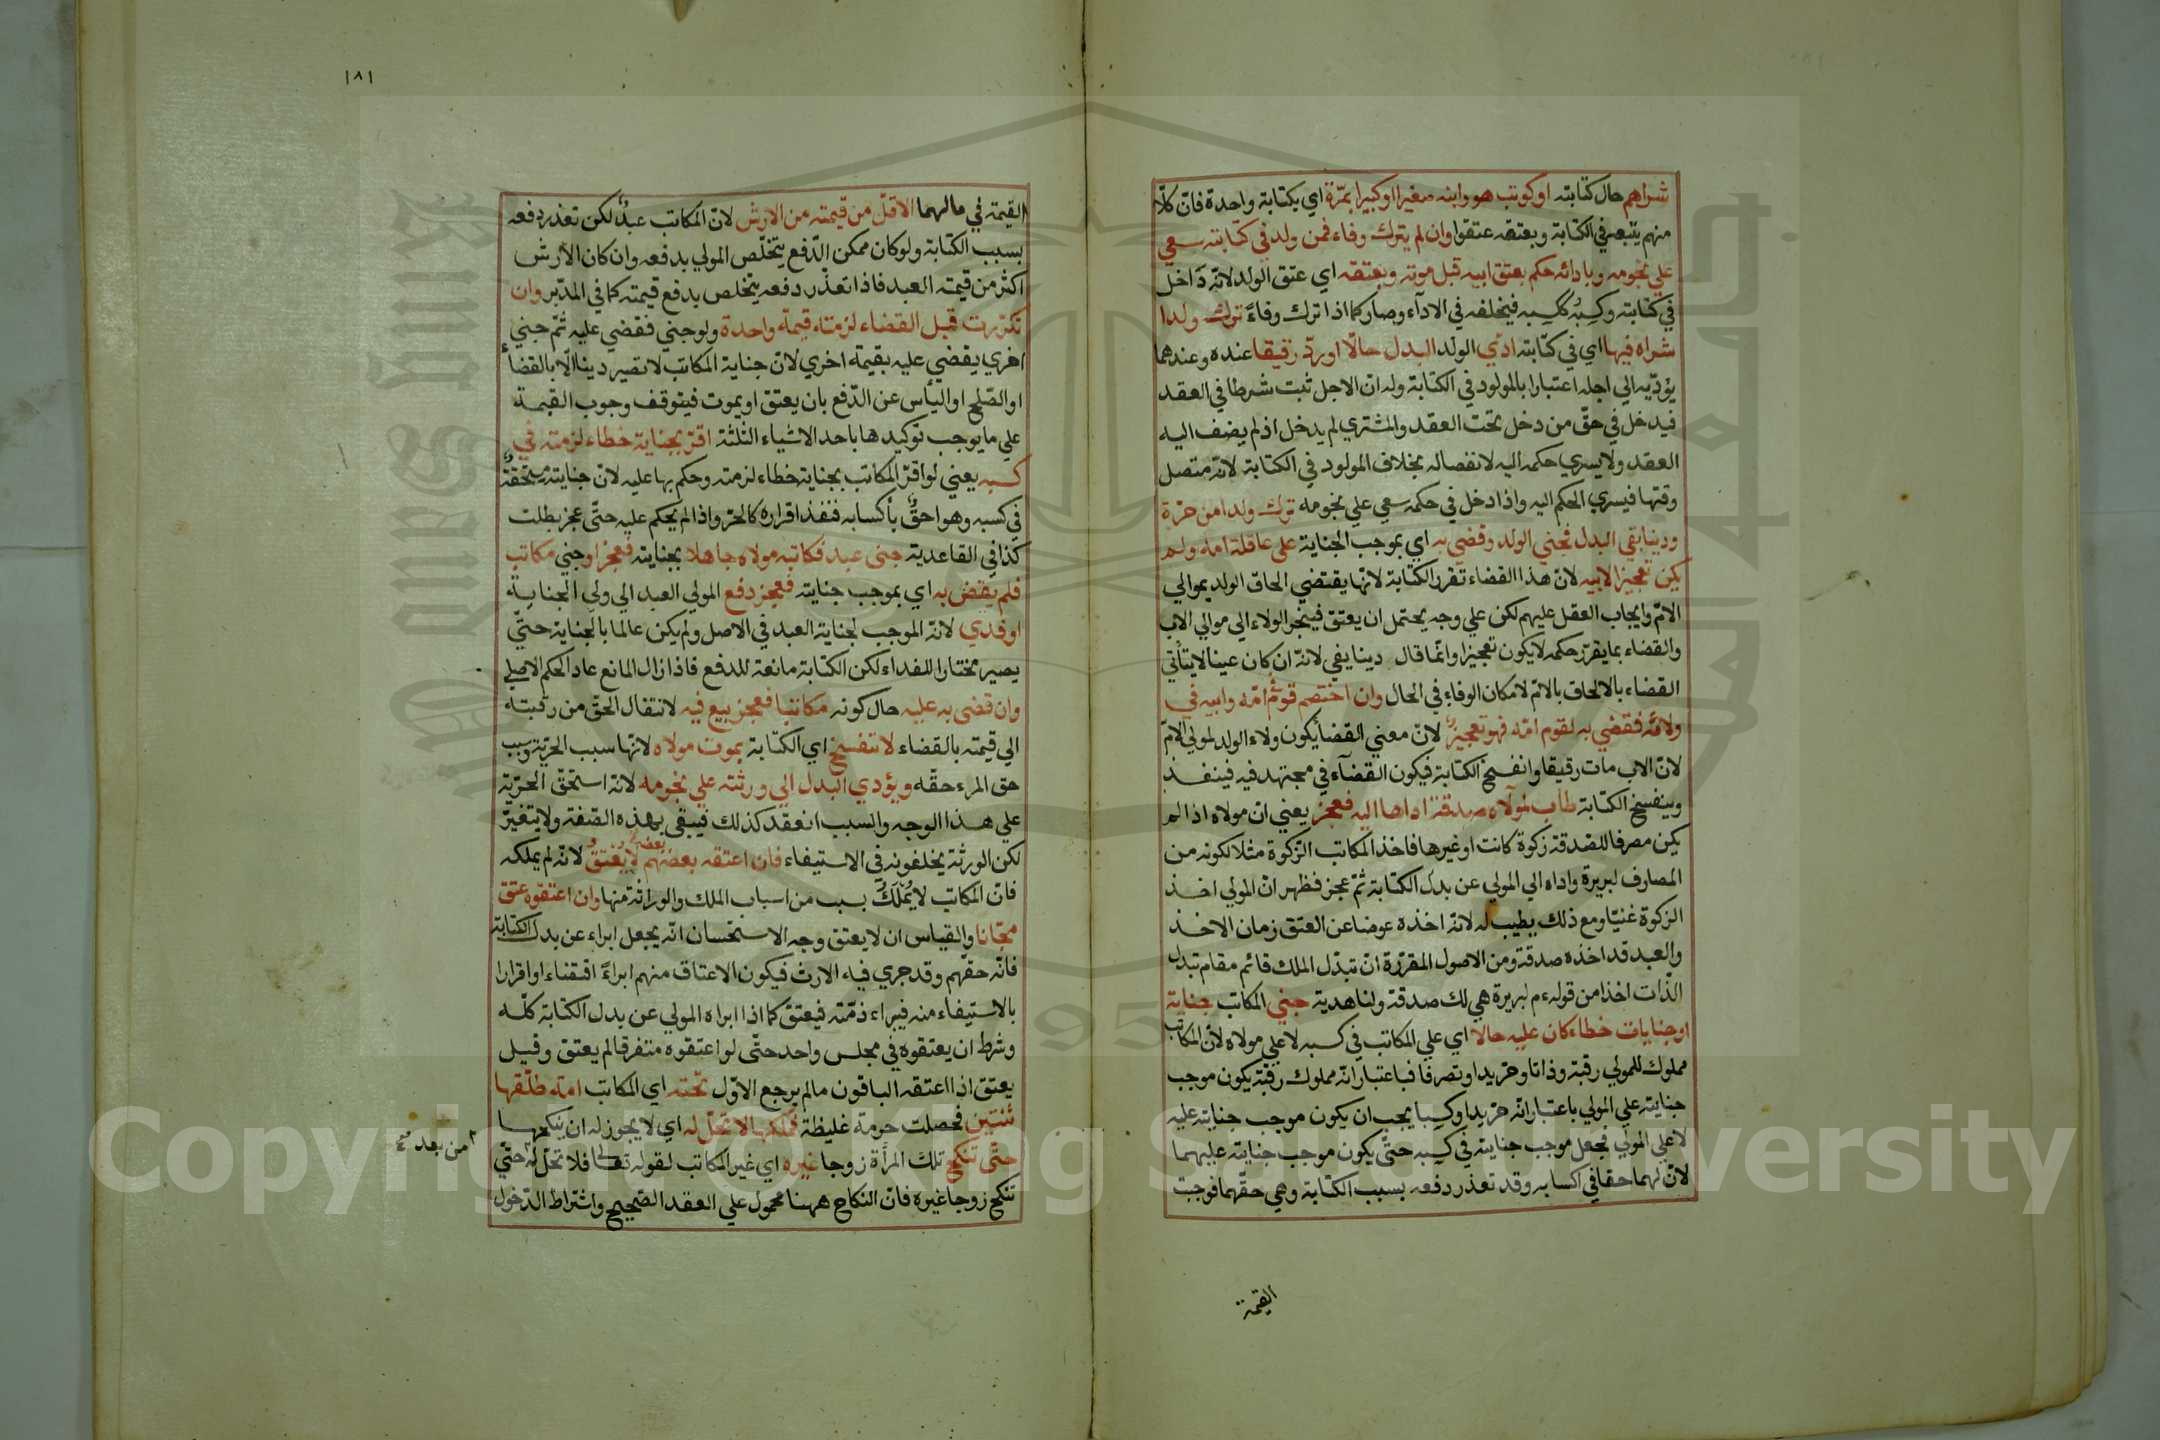 شراهم حال كتابته او كوتب هو وابنه صغيرا او كبيرا بمرّة اي بكتابة واحدة فانّ كلّا
منهم يتبعه في الكتابة وبعتقه عتقوا وان لم يترك وفاء فمن ولد في كتابته سعي
علي نجومه وبادائه حكم بعتق ابيه قبل موته وبعتقه اي عتق الولد لانّه داخل
في كتابته وكسبه ككسبه فيخلفه في الاداء وصار كما اذا ترك وفاءً ترك ولدا
شراه فيها اي في كتابته ادّي الولد البدل حالّا او ردّ رقيقا عنده وعندهما
يؤدّيه الي اجله اعتبارا بالمولود في الكتابة وله ان الاجل ثبت شرطا في العقد
فيدخل في حقّ من دخل تحت العقد والمشتري لم يدخل اذ لم يضف اليه
العقد ولا يسري حكمه اليه لانفصاله بخلاف المولود في الكتابة لانّه متصل
وقتها فيسري الحكم اليه واذا دخل في حكمه سعي علي نجومه ترك ولدا من حرّة
ودينا بقي البدل فجني الولد وقضي به اي بموجب الجناية علي عاقلة امه ولم
يكن تعجيزا لابيه لانّ هذا القضاء تقرر الكتابة لانّها يقتضي الحاق الولد بموالي
الامّ وايجاب العقل عليهم لكن علي وجه يحتمل ان يعتق فينجر الولاء الي موالي الاب
والقضاء بما يقرّر حكمه لا يكون تعجيزا وانّما قال دينا يفي لانّه ان كان عينا لا يتأتّي
القضاء بالالحاق بالامّ لامكان الوفاء في الحال وان اختصم قوم امّه وابيه في
ولائه فقضي به لقوم امّه فهو تعجيز لانّ معني القضا يكون ولاء الولد لموالي الامّ
لانّ الاب مات رقيقا وانفسخ الكتابة فيكون القضاء في مجتهد فيه فينفذ
وينفسخ الكتابة طاب لمولاه صدقة اداها اليه فعجز يعني انّ مولاه اذا لم
يكن مصرفا للصدقة زكوة كانت او غيرها فاخذ المكاتب الزّكوة مثلا لكونه من
المصارف لبريرة واداه الي المولي عن بدل الكتابة ثمّ عجز فظهر انّ المولي اخذ
الزكوة غنيّا ومع ذلك يطيب له لانّه اخذه عوضا عن العتق زمان الاخذ
والعبد قد اخذه صدقة ومن الاصول المقرّرة انّ تبدّل الملك قائم مقام تبدل
الذّات اخذا من قوله عم لبريرة هي لك صدقة ولنا هدية جني المكاتب جناية
او جنايات خطاء كان عليه حالا اي علي المكاتب في كسبه لا علي مولاه لانّ المكاتب
مملوك للمولي رقبة وذاتا وحرّ يدا وتصرفا فباعتبار انّه مملوك رقبة يكون موجب
جنايته علي المولي باعتبار انّه حرّ يدا وكسبا يجب ان يكون موجب جنايته عليه
لا علي المولي فجعل موجب جنايته في كسبه حتّي يكون موجب جنايته عليهما
لانّ لهما حقا في اكسابه وقد تعذر دفعه بسبب الكتابة وهي حقّهما فوجبت
القيمة
١٨١
القيمة في مالهما الاقلّ من قيمته من الارش لانّ المكاتب عبدٌ لكن تعذر دفعه
بسبب الكتابة ولو كان ممكن الدّفع يتخلّص المولي بدفعه وان كان الارش
اكثر من قيمته العبد فاذا تعذّر دفعه يتخلص بدفع قيمته كما في المدبّر وان
تكرّرت قبل القضاء لزمته قيمة واحدة ولو جني فقضي عليه ثمّ جني
اخري يقضي عليه بقيمة اخري لانّ جناية المكاتب لا تصير دينا الّا بالقضاء
او الصّلح او اليأس عن الدّفع بان يعتق او يموت فيتوقف وجوب القيمة
علي ما يوجب توكيدها باحد الاشياء الثلثة اقرّ بجناية خطاء لزمته في
كسبه يعني لو اقرّ المكاتب بجناية خطاء لزمته وحكم بها عليه لانّ جنايته مستحقّة
في كسبه وهو احقّ بأكسابه فنفذ اقراره كالحرّ واذا لم يحكم عليه حتّي عجز بطلت
كذا في القاعدية جني عبد فكاتبه مولاه جاهلا بجنايته فعجز او جني مكاتب
فلم يقض به اي بموجب جنايته فعجز دفع المولي العبد الي ولي الجناية
او فدي لانّه الموجب لجناية العبد في الاصل ولم يكن عالما بالجناية حتّي
يصير مختارا للفداء لكن الكتابة مانعة للدفع فاذا زال المانع عاد الحكم الاصلي
وان قضي به عليه حال كونه مكاتبا فعجز بيع فيه لانتقال الحقّ من رقبته
الي قيمته بالقضاء لا تنفسخ اي الكتابة بموت مولاه لانّها سبب الحرّية وسبب
حق المرء حقّه ويؤدي البدل الي ورثته علي نجومه لانّه استحقّ الحرّية
علي هذا الوجه والسبب انعقد كذلك فيبقي بهذه الصّفة ولا يتغيّر
لكن الورثة يخلفونه في الاستيفاء فان اعتقه بعضهم لا يعتق لانّه لم يملكه
فانّ المكاتب لا يُملَكُ بسبب من اسباب الملك والوراثة منها وان اعتقوه عتق
مجّانا والقياس ان لا يعتق وجه الاستحسان انّه يجعل ابراء عن بدل الكتابة
فانّه حقّهم وقد جري فيه الارث فيكون الاعتاق منهم ابراءً اقتضاء او اقرارا
بالاستيفاء منه فيبراء ذمّته فيعتق كما اذا ابراه المولي عن بدل الكتابة كلّه
وشرط ان يعتقوه في مجلس واحد حتّي لو اعتقوه متفرقا لم يعتق وقيل
يعتق اذا اعتقه الباقون مالم يرجع الاوّل تحته اي المكاتب امته طلّقها
ثنتين فحصلت حرمة غليظة فملكها لا تحلّ له اي لا يجوز له ان ينكحها
حتّي تنكح تلك المرأة زوجا غيره اي غير المكاتب لقوله تعالي فلا تحلّ له حتّي
من بعد صح
تنكح زوجا غيره فانّ النكاح ههنا محمول علي العقد الصّحيح واشتراط الدّخول